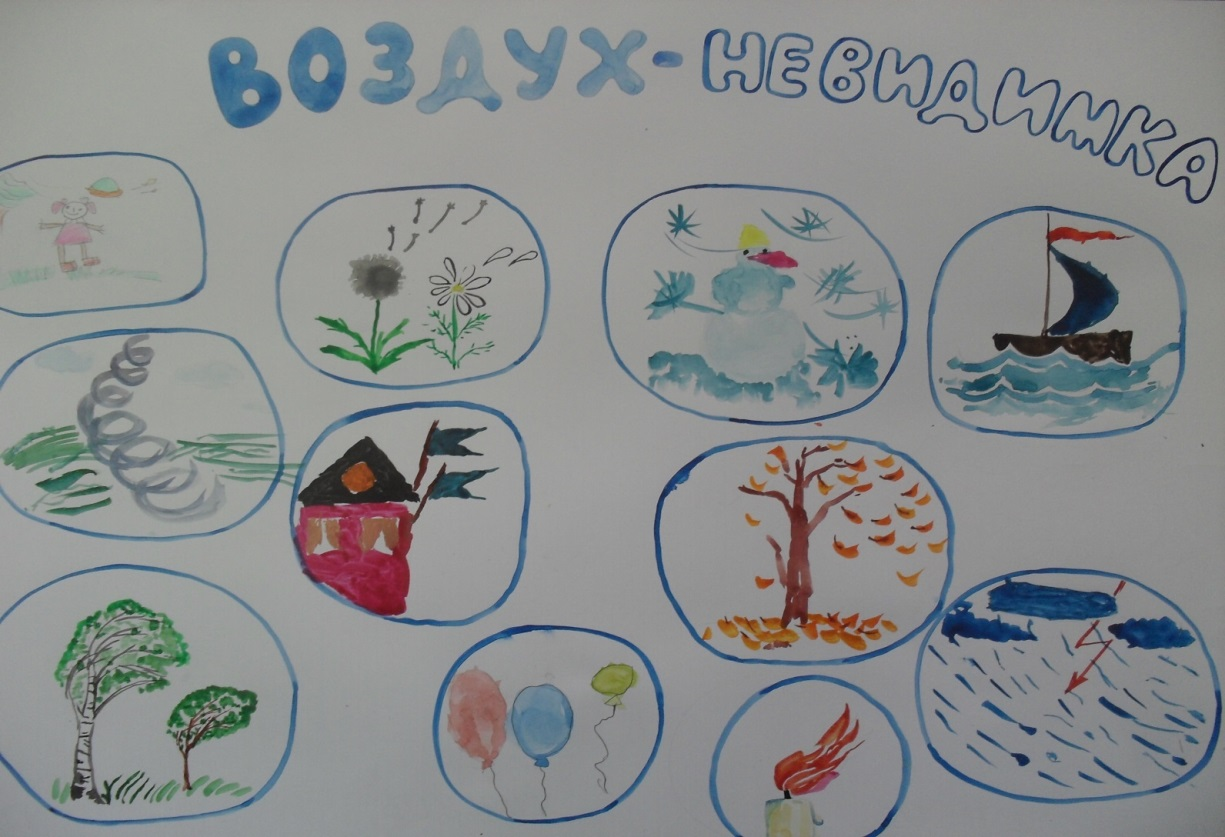 ВОЗДУХ-НЕВИДИМКА